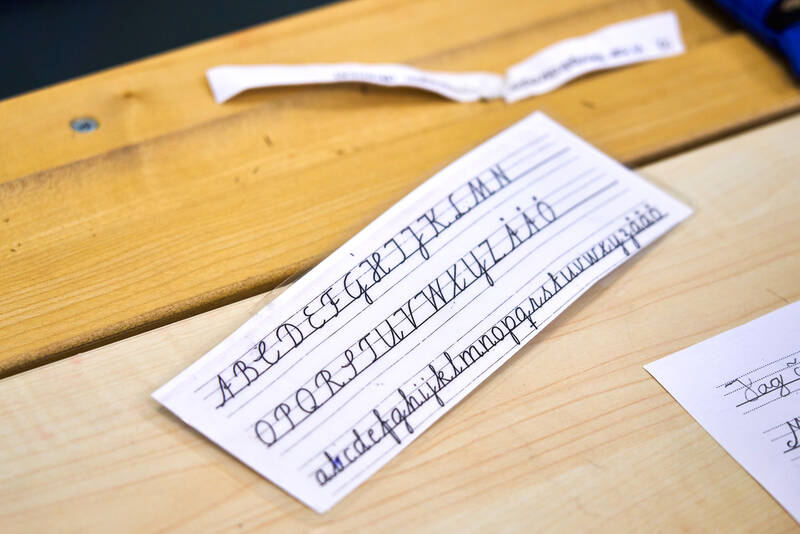 A B C D E F G H I J K L M N
O P Q R S T U V W X Y Z Å Ä Ö
abcdefghijklmnopqrstuvwxyzåäö
Jag